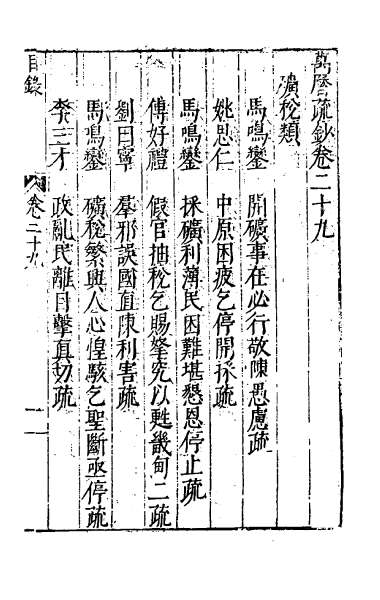 萬曆疏鈔卷二十九
礦稅類
馬鳴鑾 開礦事在必行敬陳愚慮疏
姚思仁 中原困疲乞停開採疏
馬鳴鑾 採礦利薄民困難堪懇恩停止疏
傅好禮 假官抽稅乞賜拏究以甦畿甸二疏
劉日寧 羣邪誤國直陳利害疏
馬鳴鑾 礦稅繁興人心惶駭乞聖斷亟停疏
李三才 政亂民離目擊真切疏
目錄 卷二十九 一